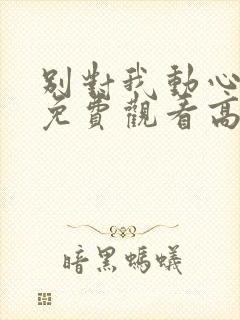 別對我動心
免費觀看高
暗黑螞蟻